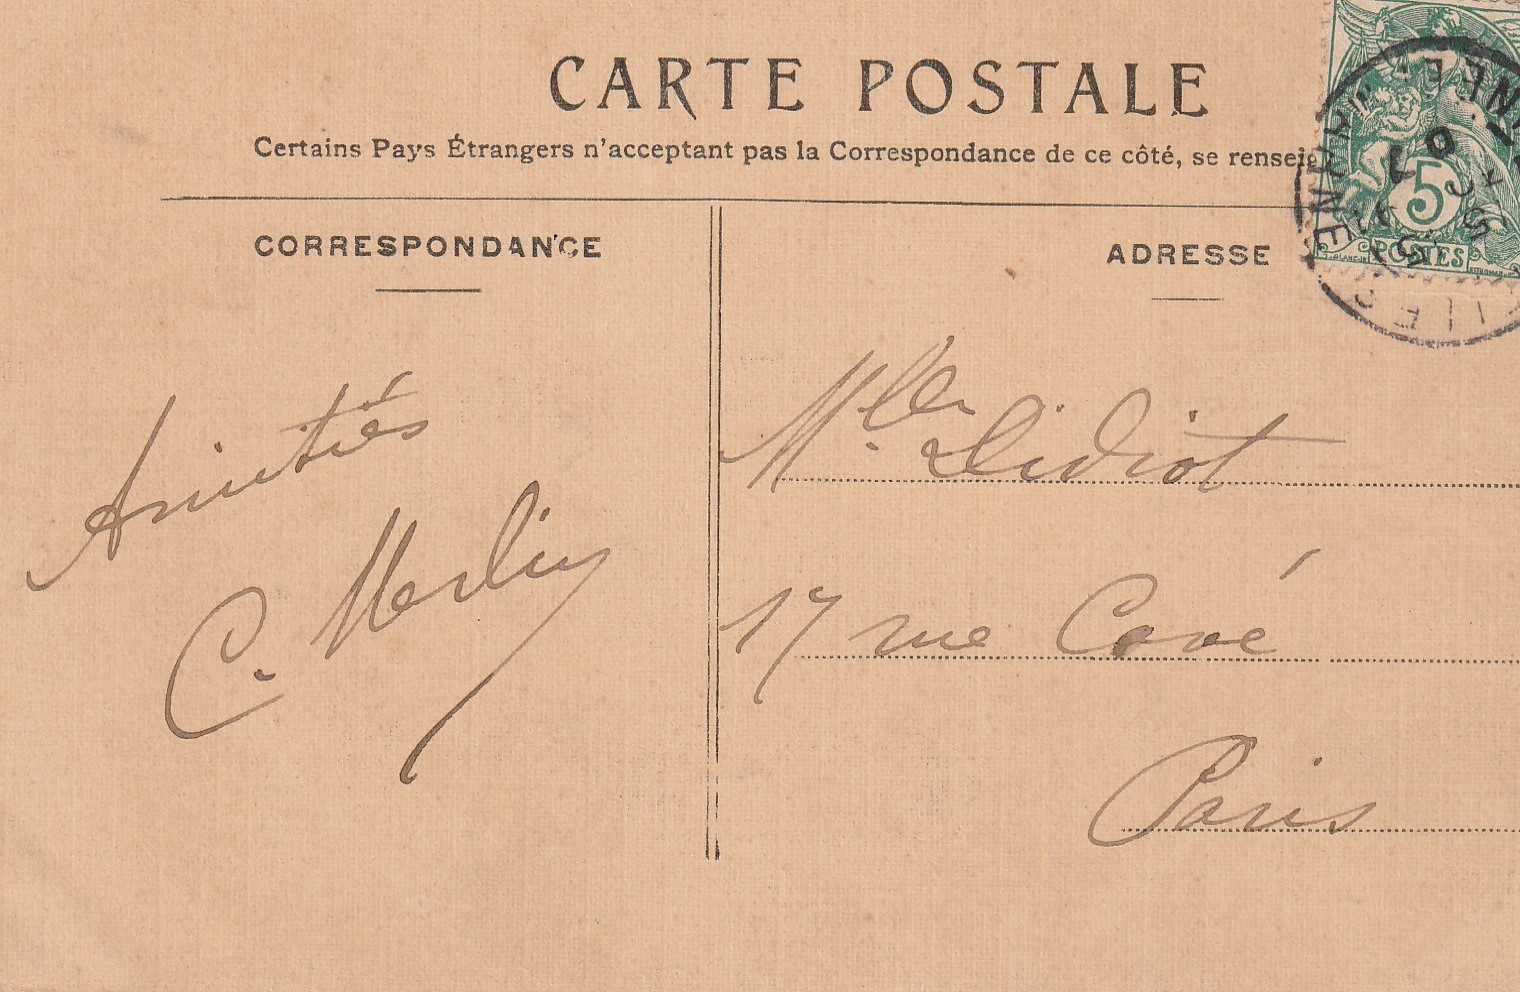 CARTE POSTALE
Certains Pays Étrangers n'acceptant pas la Correspondance de ce côté, se renseig
CORRESPONDANCE
ADRESSE
5
POSTES
Amitiés
C. Merlin
Mlle Didiot
17 rue Cavé
Paris